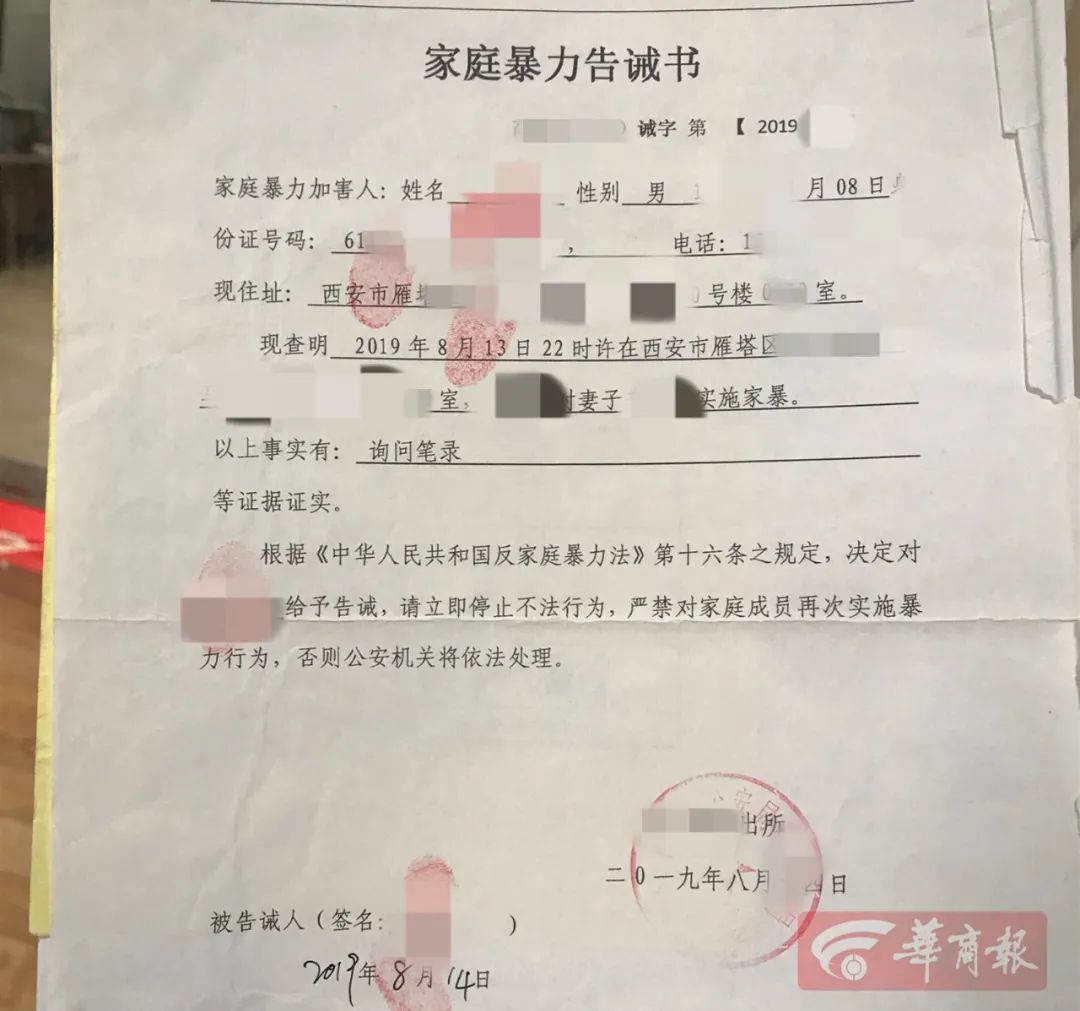 家庭暴力告诫书
诫字 第 【 2019
家庭暴力加害人：姓名 性别 男 1 月 08 日
份证号码： 61 ， 电话：1
现住址： 西安市雁塔 号楼 室。
现查明 2019 年 8 月 13 日 22 时许在西安市雁塔区
室， 对妻子 实施家暴。
以上事实有： 询问笔录
等证据证实。
根据《中华人民共和国反家庭暴力法》第十六条之规定，决定对
给予告诫，请立即停止不法行为，严禁对家庭成员再次实施暴
力行为，否则公安机关将依法处理。
出所
二0一九年八月 四日
被告诫人（签名： ）
2019年 8月 14日
華商報